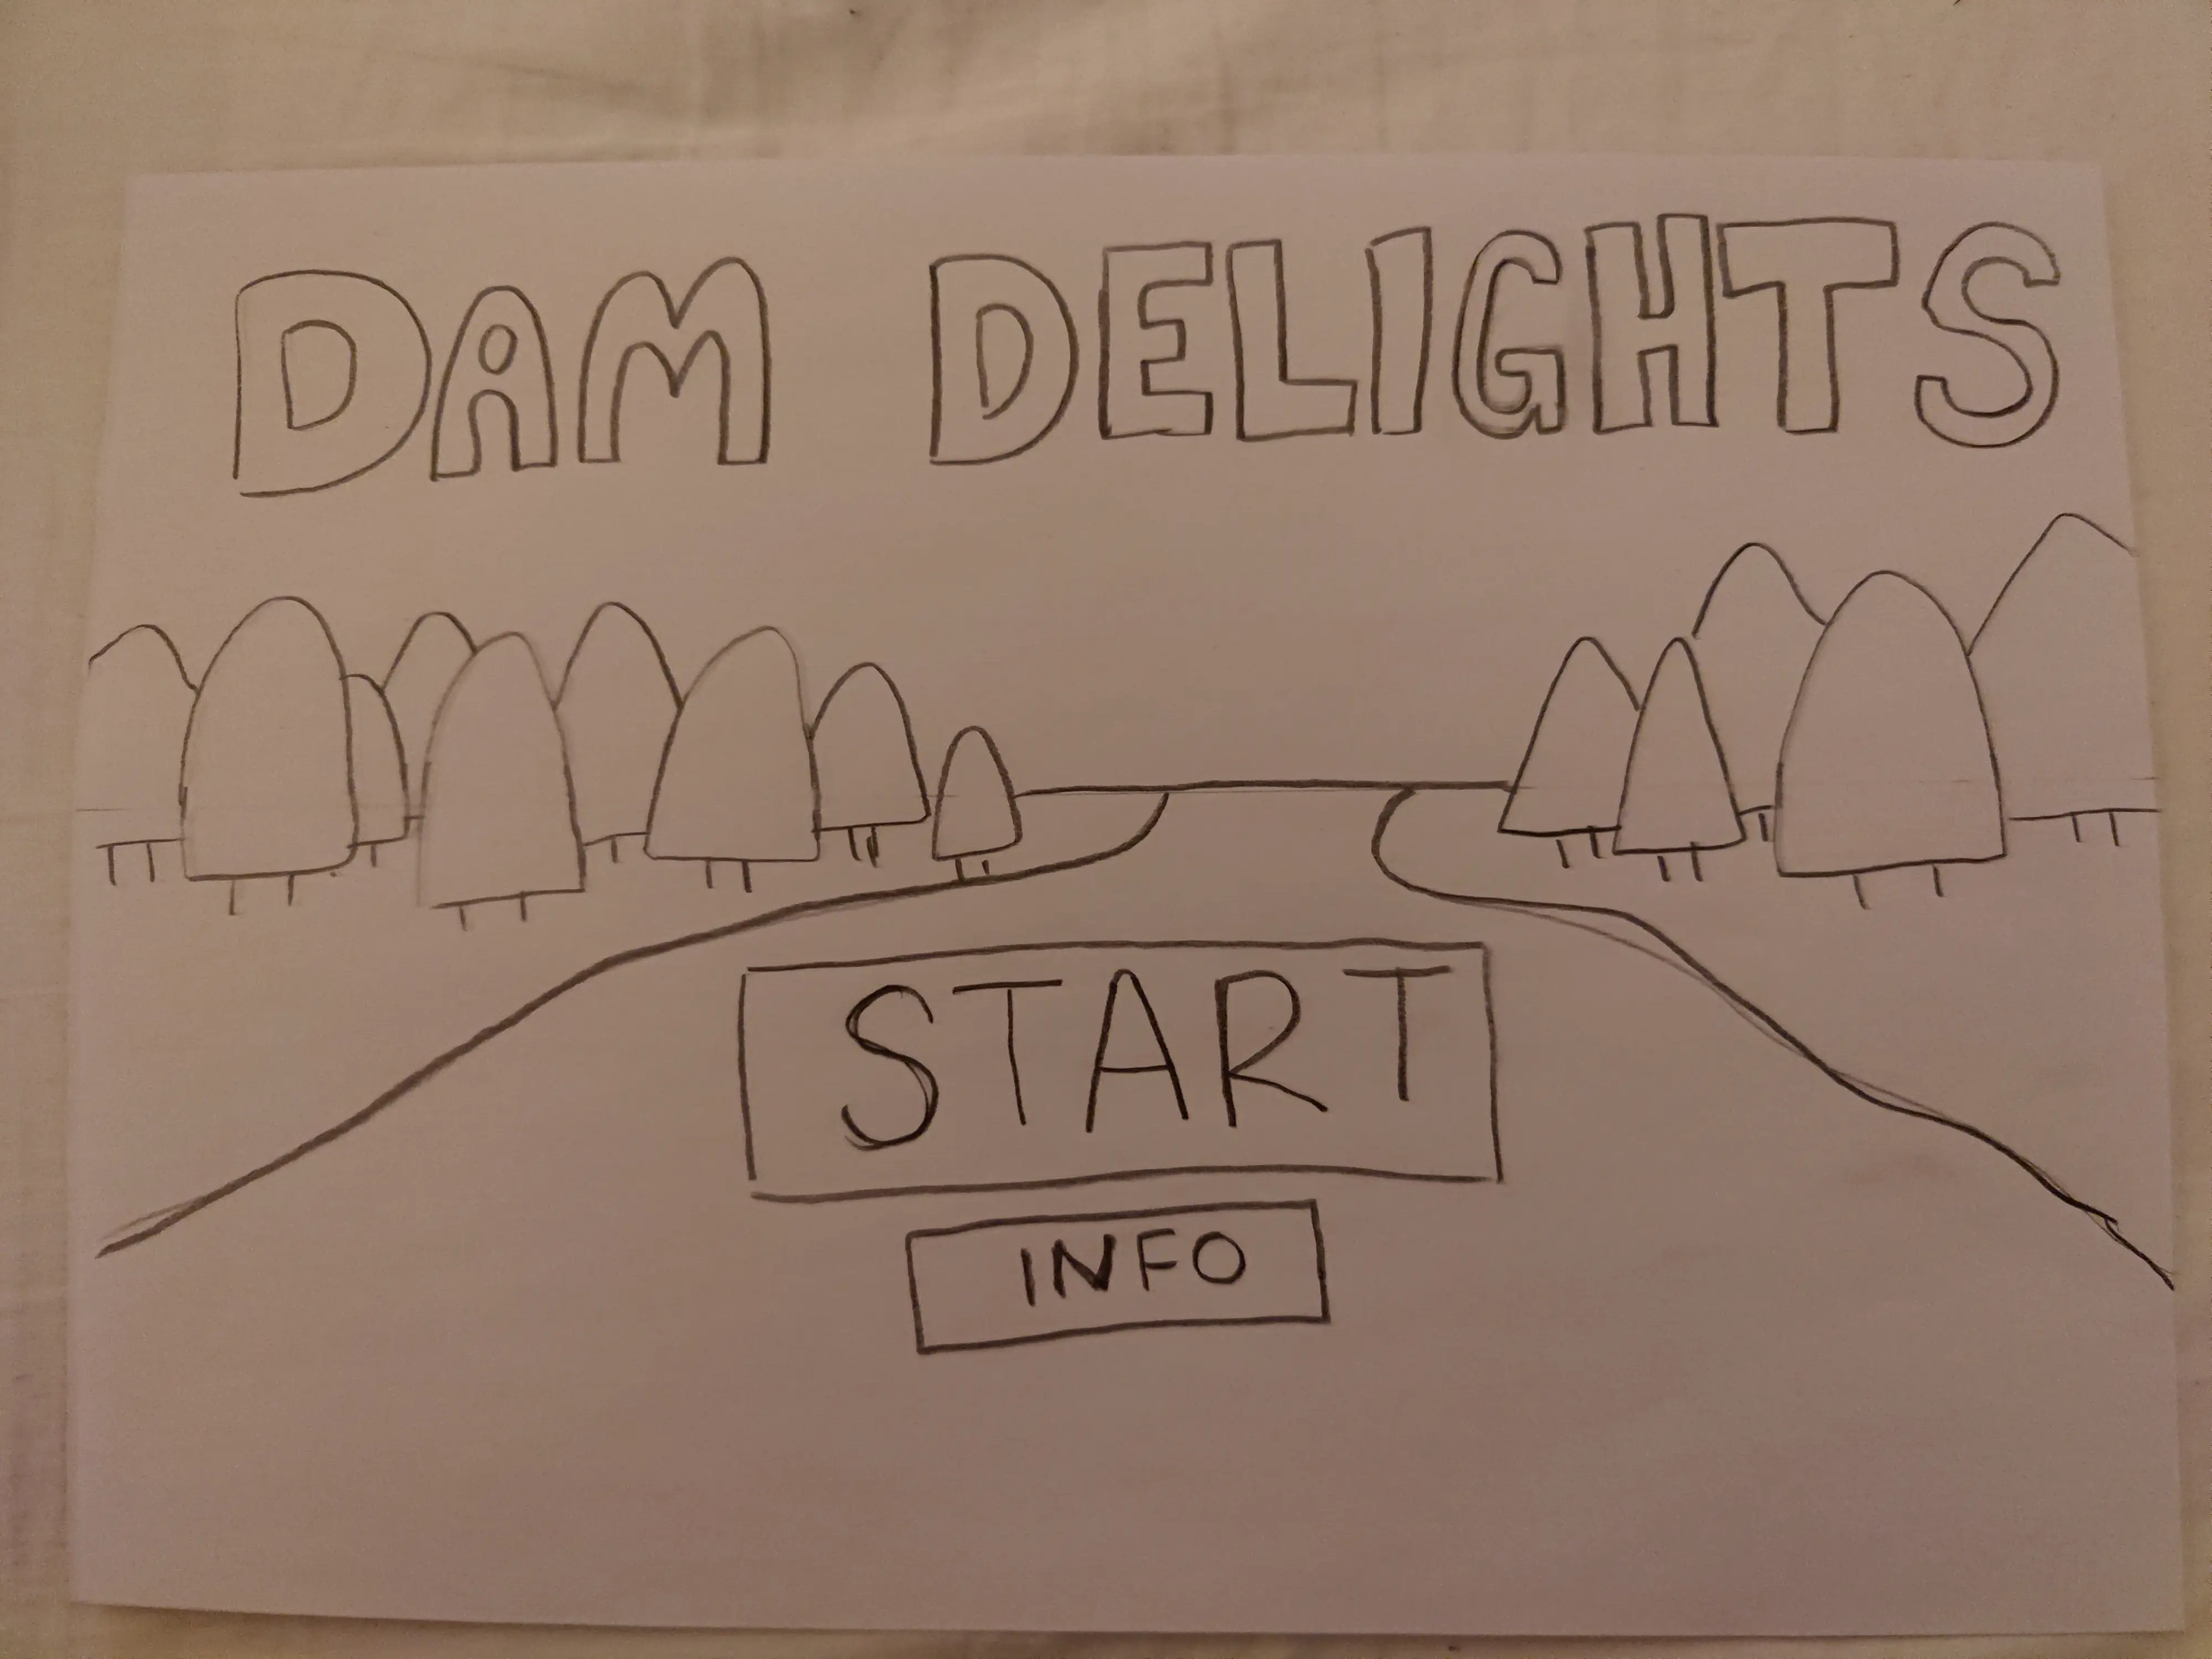 DAM DELIGHTS
START
INFO